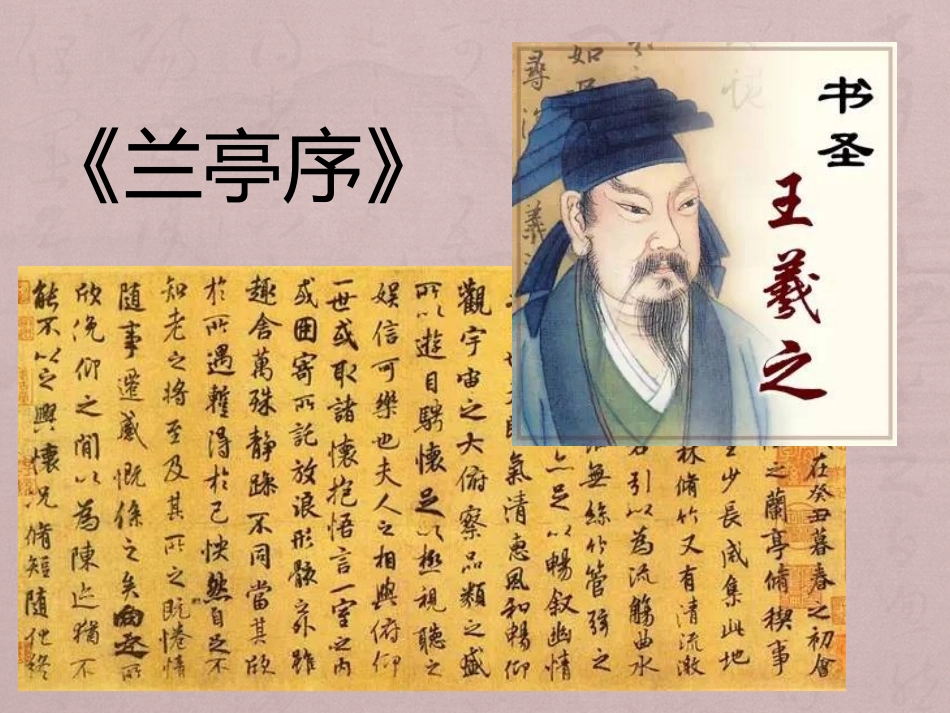 《兰亭序》
书圣
王羲之
在癸丑暮春之初會
之蘭亭脩稧事
至少長咸集此地
林脩竹又有清流激
右引以為流觴曲水
無絲竹管弦之
亦足以暢敘幽情
氣清惠風和暢仰
觀宇宙之大俯察品類之盛
所以遊目騁懷足以極視聽之
娛信可樂也夫人之相與俯仰
一世或取諸懷抱悟言一室之內
或因寄所託放浪形骸之外雖
趣舍萬殊靜躁不同當其欣
於所遇暫得於己怏然自足不
知老之將至及其所之既惓情
隨事遷感慨係之矣向之所
欣俛仰之閒以為陳迹猶不
能不以之興懷況脩短隨化終